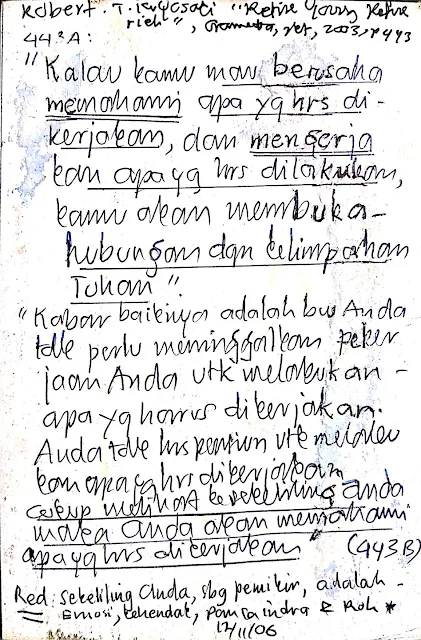 Robert. T. Kiyosaki "Retire Young Retire
rich", Gramedia, 2003, p 443
443A:
"Kalau kamu mau berusaha
memahami apa yg hrs di-
kerjakan, dan mengerja
kan apa yg hrs dilakukan,
kamu akan membuka-
hubungan dgn kelimpahan
Tuhan".
"Kabar baiknya adalah bw Anda
tdk perlu meninggalkan peker
jaan Anda utk melakukan -
apa yg harus dikerjakan.
Anda tdk hrs pensiun utk melaku
kan apa yg hrs dikerjakan
cukup melihat kesekeliling anda
maka Anda akan memahami
apa yg hrs dikerjakan" (443B)
Red: sekeliling anda, sbg pemikir, adalah -
Emosi, kehendak, panca indra & Roh *
17/11/06